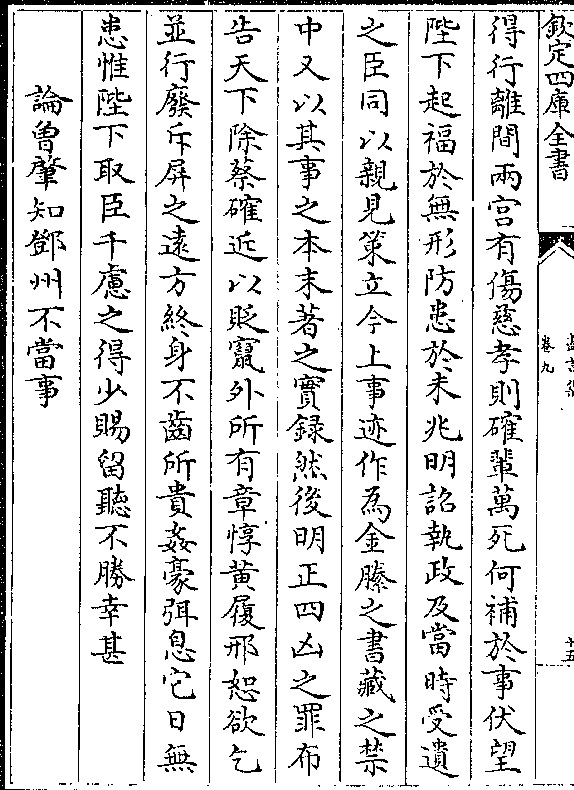 欽定四庫全書
盡言集
卷九
十五
得行離間兩宮有傷慈孝則確輩萬死何補於事伏望
陛下起福於無形防患於未兆明詔執政及當時受遺
之臣同以親見策立今上事迹作為金縢之書藏之禁
中又以其事之本末著之實録然後明正四凶之罪布
告天下除蔡確近以貶竄外所有章惇黄履邢恕欲乞
並行廢斥屏之遠方終身不齒所貴姦豪弭息它日無
患惟陛下取臣千慮之得少賜留聽不勝幸甚
論曾肇知鄧州不當事